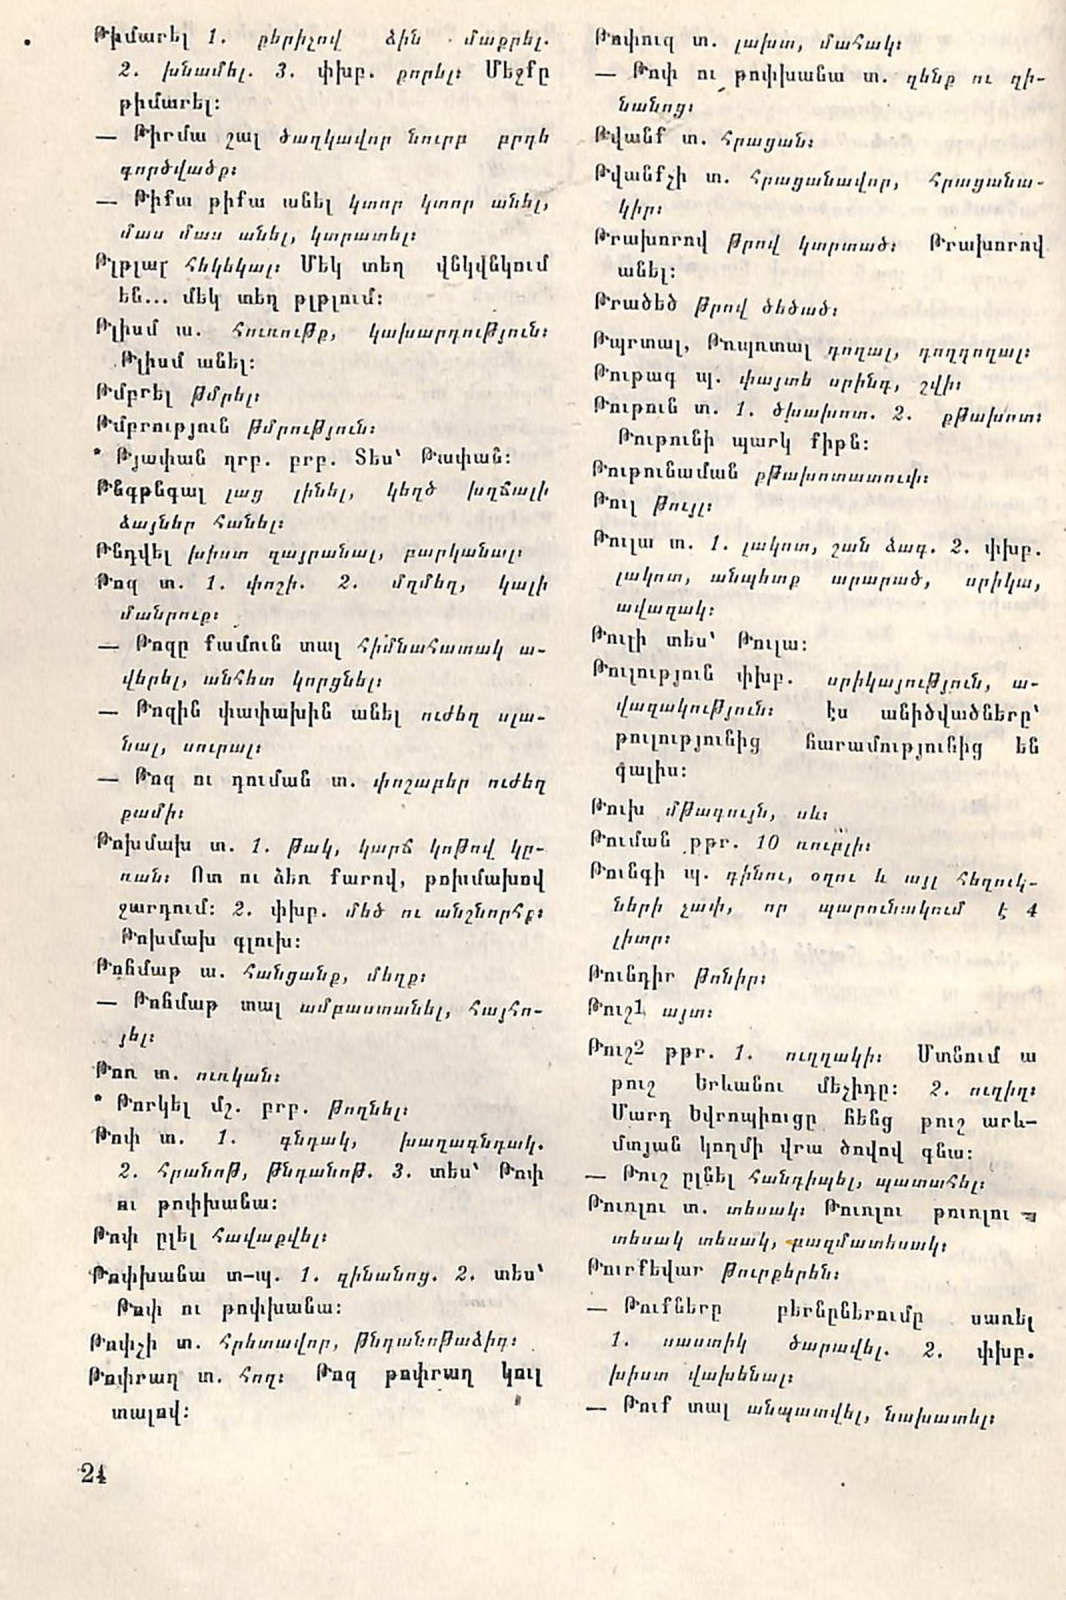 Թիմարել 1. քերիչով ձին մաքրել.
2. խնամել. 3. փխբ. քորել։ Մեջքը
թիմարել։
— Թիրմա շալ ծաղկավոր նուրբ բրդե
գործվածք։
— Թիքա թիքա անել կտոր կտոր անել,
մաս մաս անել, կտրատել։
Թլթլալ հեկեկալ։ Մեկ տեղ վնկվնկում
են... մեկ տեղ թլթլում։
Թլիսմ ա. հուռութք, կախարդություն։
Թլիսմ անել։
Թմբրել թմրել։
Թմբրություն թմրություն։
* Թյափան ղրբ. բրբ. Տես՝ Թափան։
Թնգթնգալ լաց լինել, կեղծ խղճալի
ձայներ հանել։
Թնդվել խիստ զայրանալ, բարկանալ։
Թոզ տ. 1. փոշի. 2. մղմեղ, կալի
մանրուք։
— Թոզը քամուն տալ հիմնահատակ ա-
վերել, անհետ կորցնել։
— Թոզին փափախին անել ուժեղ սլա-
նալ, սուրալ։
— Թոզ ու դուման տ. փոշաբեր ուժեղ
քամի։
Թոխմախ տ. 1. թակ, կարճ կոթով կը-
ռան։ Ոտ ու ձեռ քարով, թոխմախով
ջարդում։ 2. փխբ. մեծ ու անշնորհք։
Թոխմախ գլուխ։
Թոհմաթ ա. հանցանք, մեղք։
— Թոհմաթ տալ ամբաստանել, հայհո-
յել։
Թոռ տ. ուռկան։
* Թորկել մշ. բրբ. թողնել։
Թոփ տ. 1. գնդակ, խաղագնդակ.
2. հրանոթ, թնդանոթ. 3. տես՝ Թոփ
ու թոփխանա։
Թոփ ըլել հավաքվել։
Թոփխանա տ-պ. 1. զինանոց. 2. տես՝
Թոփ ու թոփխանա։
Թոփչի տ. հրետավոր, թնդանոթաձիգ։
Թոփրաղ տ. հող։ Թոզ թոփրաղ կուլ
տալով։
24
Թոփուզ տ. լախտ, մահակ։
— Թոփ ու թոփխանա տ. զենք ու զի-
նանոց։
Թվանք տ. հրացան։
Թվանքչի տ. հրացանավոր, հրացանա-
կիր։
Թրախորով թրով կտրտած։ Թրախորով
անել։
Թրածեծ թրով ծեծած։
Թպրտալ, Թոպոտալ դողալ, դողդողալ։
Թութագ պ. փայտե սրինգ, շվի։
Թութուն տ. 1. ծխախոտ. 2. քթախոտ։
Թութունի պարկ քիթն։
Թութունաման քթախոտատուփ։
Թուլ թույլ։
Թուլա տ. 1. լակոտ, շան ձագ. 2. փխբ.
լակոտ, անպետք արարած, սրիկա,
ավազակ։
Թուլի տես՝ Թուլա։
Թուլություն փխբ. սրիկայություն, ա-
վազակություն։ Էս անիծվածները՝
թուլությունից հարամությունից են
գալիս։
Թուխ մթագույն, սև։
Թուման թթր. 10 ռուբլի։
Թունգի պ. գինու, օղու և այլ հեղուկ-
ների չափ, որ պարունակում է 4
լիտր։
Թունդիր թոնիր։
Թուշ1 այտ։
Թուշ2 թթր. 1. ուղղակի։ Մտնում ա
թուշ Երևանու մեչիդը։ 2. ուղիղ։
Մարդ Եվրոպիուցը հենց թուշ արև-
մտյան կողմի վրա ծովով գնա։
— Թուշ ըլնել հանդիպել, պատահել։
Թուռլու տ. տեսակ։ Թուռլու թուռլու —
տեսակ տեսակ, բազմատեսակ։
Թուրքեվար Թուրքերեն։
— Թուքները բերնըներումը սառել
1. սաստիկ ծարավել. 2. փխբ.
խիստ վախենալ։
— Թուք տալ անպատվել, նախատել։